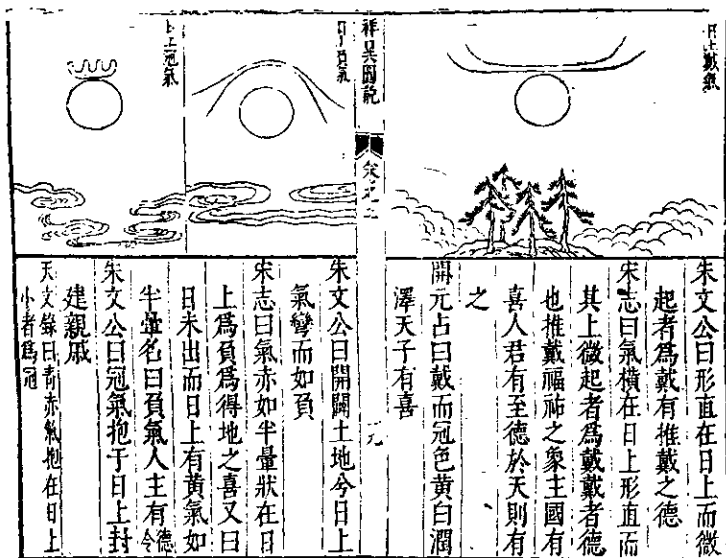 日上戴氣
朱文公曰形直在日上而微
起者爲戴有推戴之德
宋志曰氣橫在日上形直而
其上微起者爲戴戴者德
也推戴福祐之象主國有
喜人君有至德於天則有
之
開元占曰戴而冠色黃白潤
澤天子有喜
祥異圖說
日上負氣
朱文公曰開闢土地今日上
氣彎而如負
宋志曰氣赤如半暈狀在日
上爲負爲得地之喜又曰
日未出而日上有黃氣如
半暈名曰負氣人主有德令
日上冠氣
朱文公曰冠氣抱于日上封
建親戚
天文錄曰青赤氣抱在日上
小者爲冠